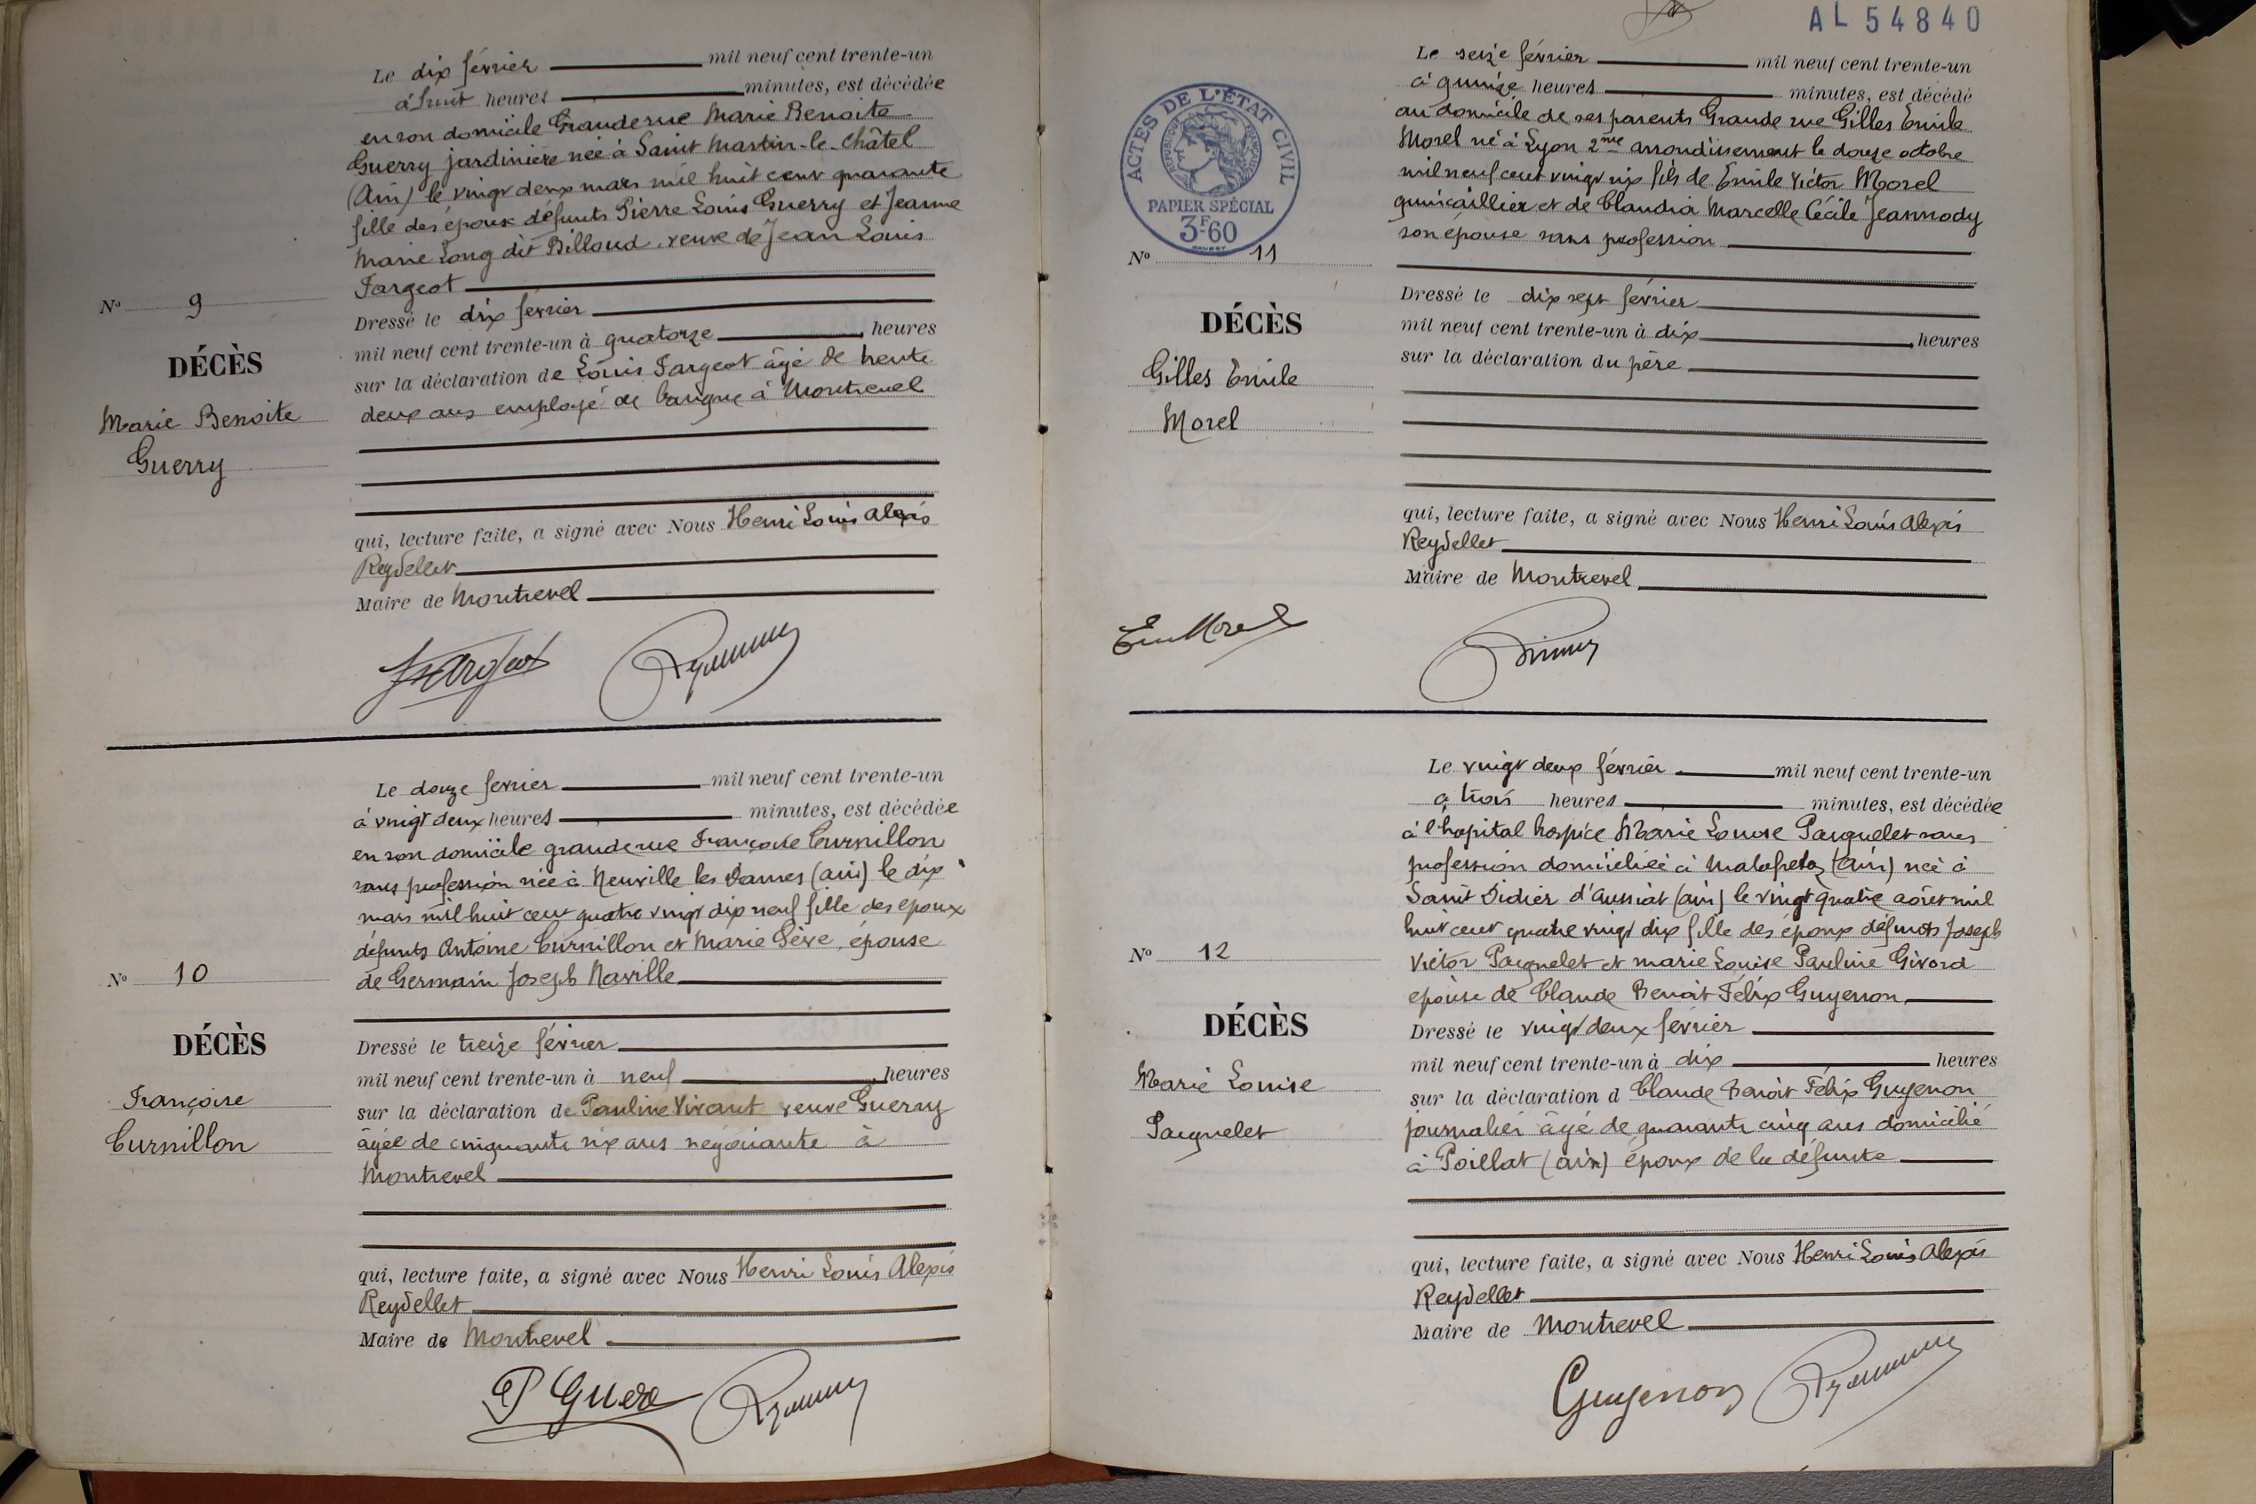 Le dix février mil neuf cent trente-un
à huit heures minutes, est décédée
en son domicile Grande rue Marie Benoite
Guerry jardinière née à Saint Martin-le-Châtel
(Ain) le vingt deux mars mil huit cent quarante
fille des époux défunts Pierre Louis Guerry et Jeanne
Marie Long dit Billoud, veuve de Jean Louis
Fargeot
Nº 9
DÉCÈS
Marie Benoite
Guerry
Dressé le dix février
mil neuf cent trente-un à quatorze heures
sur la déclaration de Louis Fargeot âgé de trente
deux ans employé de banque à Montrevel
qui, lecture faite, a signé avec Nous Henri Louis Alexis
Reydellet
Maire de Montrevel
Le douze fevrier mil neuf cent trente-un
à vingt deux heures minutes, est décédée
en son domicile grande rue Françoise Curnillon
sans profession née à Neuville les Dames (ain) le dix
mars mil huit cent quatre vingt dix neuf fille des époux
défunts Antoine Curnillon et Marie Sève, épouse
de Germain Joseph Naville
Nº 10
DÉCÈS
Françoise
Curnillon
Dressé le treize février
mil neuf cent trente-un à neuf heures
sur la déclaration de Pauline Vivant veuve Guerry
âgée de cinquante six ans négociante à
Montrevel
qui, lecture faite, a signé avec Nous Henri Louis Alexis
Reydellet
Maire de Montrevel
P Guere
AL 54840
Le seize février mil neuf cent trente-un
à quinze heures minutes, est décédé
au domicile de ses parents Grande rue Gilles Emile
Morel né à Lyon 2me arrondissement le douze octobre
mil neuf cent vingt six fils de Emile Victor Morel
quincaillier et de Claudia Marcelle Cécile Jeannody
son épouse sans profession
ACTES DE L'ÉTAT CIVIL
RÉPUBLIQUE FRANÇAISE
PAPIER SPÉCIAL
3F60
Nº 11
DÉCÈS
Gilles Emile
Morel
Dressé le dix sept février
mil neuf cent trente-un à dix heures
sur la déclaration du père
qui, lecture faite, a signé avec Nous Henri Louis Alexis
Reydellet
Maire de Montrevel
Em Morel
Le vingt deux février mil neuf cent trente-un
à trois heures minutes, est décédée
à l'hopital hospice Marie Louise Paignelet sans
profession domiciliée à Malafretaz (ain) née à
Saint Didier d'Aussiat (ain) le vingt quatre août mil
huit cent quatre vingt dix fille des époux défunts Joseph
Victor Paignelet et Marie Louise Pauline Givord
épouse de Claude Benoit Félix Guyenon
Nº 12
DÉCÈS
Marie Louise
Paignelet
Dressé le vingt deux février
mil neuf cent trente-un à dix heures
sur la déclaration d Claude Benoit Félix Guyenon
journalier âgé de quarante cinq ans domicilié
à Poillat (ain) époux de la défunte
qui, lecture faite, a signé avec Nous Henri Louis Alexis
Reydellet
Maire de Montrevel
Guyenon